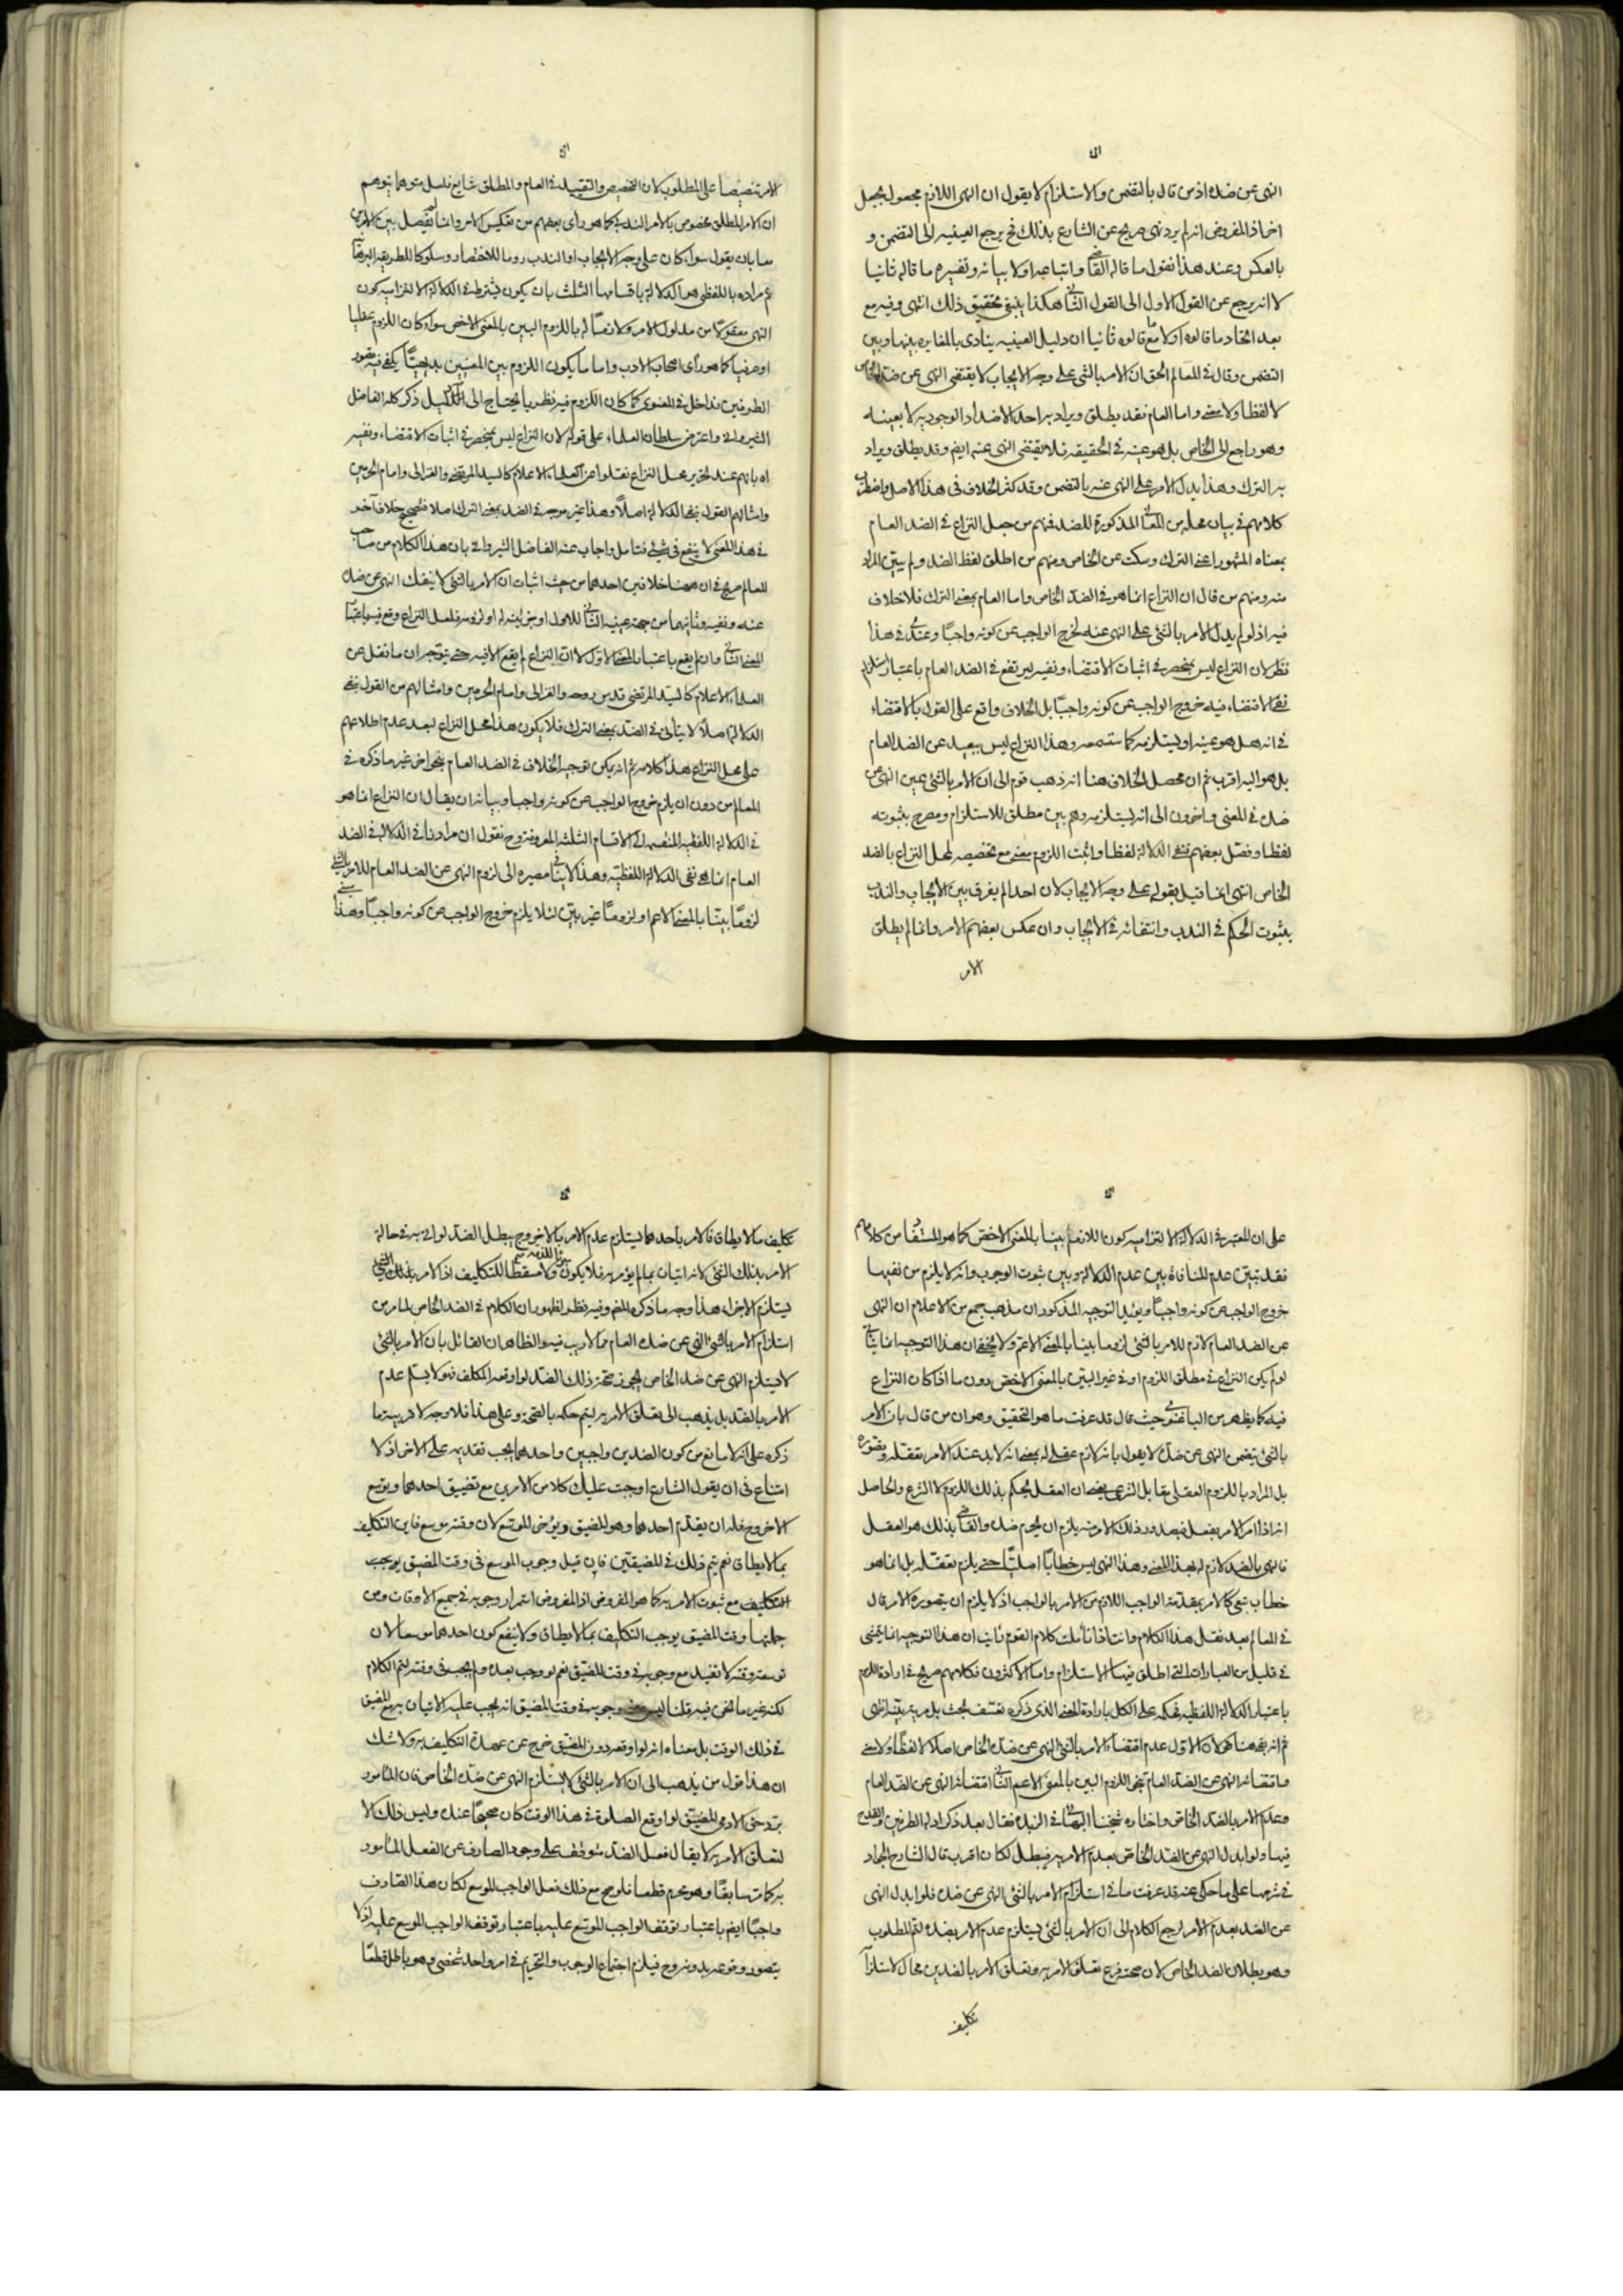 النهى عن ضده اذ من قال بالتضمن والاستلزام لا يقول ان النهى اللازم مجعول بجعل
اخر اذ المفروض انه لم يرد نهى صريح عن الشارع بذلك فح يرجع العينيه الى التضمن و
بالعكس وعند هذا نقول ما قاله القاضى واتباعه اولا بيانه وتفسيره ما قاله ثانيا
لا انه رجع عن القول الاول الى القول الثانى هكذا ينبغى تحقيق ذلك انتهى وفيه مع
بعد اتحاد ما قالوه اولا مع ما قالوه ثانيا ان دليل العينيه ينادى بالمغايره بينها وبين
التضمن وقال فى المعالم الحق ان الامر بالشئ على وجه الايجاب لا يقتضى النهى عن ضده الخاص
لا لفظا ولا معنى واما العام فقد يطلق ويراد به احد الاضداد الوجوديه لا بعينه
وهو راجع الى الخاص بل هو عينه فى الحقيقه فلا يقتضى النهى عنه ايضم وقد يطلق ويراد
به الترك وهذا يدل الامر على النهى عنه بالتضمن وقد كثر الخلاف فى هذا الاصل واضطرب
كلامهم فى بيان محله من المعانى المذكورة للضد فمنهم من جعل النزاع فى الضد العام
بمعناه المشهور اعنى الترك وسكت عن الخاص ومنهم من اطلق لفظ الضد ولم يبيّن المراد
منه ومنهم من قال ان النزاع انما هو فى الضدّ الخاص واما العام بمعنى الترك فلا خلاف
فيه اذ لو لم يدل الامر بالشئ على النهى عنه لخرج الواجب عن كونه واجبًا وعندى فى هذا
نظر لان النزاع ليس بمنحصر فى اثبات الاقتضاء ونفيه ليرتفع فى الضد العام باعتبار استلزام
نفى الاقتضاء فيه خروج الواجب عن كونه واجبًا بل الخلاف واقع على القول بالاقتضاء
فى انه هل هو عينه او يستلزمه كما ستسمعه وهذا النزاع ليس ببعيد عن الضد العام
بل هو اليه اقرب ثم ان محصل الخلاف هنا انه ذهب قوم الى ان الامر بالشئ عين النهى عن
ضده فى المعنى واخرون الى انه يستلزمه وهم بين مطلق للاستلزام ومصرح بثبوته
لفظا وفصل بعضهم فنفى الدلالة لفظا واثبت اللزوم معنى مع تخصيصه لمحل النزاع بالضد
الخاص انتهى انما قيل بقوله على وجه الايجاب لان احدا لم يفرق بين الايجاب والندب
بثبوت الحكم فى الندب وانتفائه فى الايجاب وان عكس بعضهم الامر وانما لم يطلق
الامر
الامر تنصيصا على المطلوب لان التخصيص والتقييد فى العام والمطلق شايع فلعل متوهما يتوهم
ان الامر المطلق مخصوص بالامر الندبى كما هو رأى بعضهم من تعكيس الامر وانما لم يفصل بين الامرين
معا بان يقول سواء كان على وجه الايجاب او الندب روما للاختصار وسلوكا للطريقه
ثم مراده باللفظى هو الدلالة باقسامها الثلث بان يكون فيشترط فى الدلالة الالتزاميه كون
النهى معقولا من مدلول الامر ولازمًا له باللزوم البين بالمعنى الاخص سواء كان اللزوم عقليا
او عرفيا كما هو رأى اصحاب الادب واما ما يكون اللزوم بين المعنيين بديهيًّا يكفى فيه تصور
الطرفين فداخل فى المعنوى كما كان اللزوم فيه نظريا يحتاج الى الدليل ذكر كله الفاضل
الشيروانى واعترض سلطان العلماء على قوله لان النزاع ليس بمنحصر فى اثبات الاقتضاء ونفيه
اه بانهم عند تحرير محل النزاع نقلوا عن العلماء الاعلام كالسيد المرتضى والغزالى وامام الحرمين
وامثالهم القول بنفى الدلالة اصلاً وهذا غير موجه فى الضد بمعنى الترك اصلا فتصحيح خلاف آخر
فى هذا المعنى لا ينفع فى شئ فتامل واجاب عنه الفاضل الشيروانى بان هذا الكلام من صاحب
المعالم صريح فى ان ههنا خلافين احدهما من حيث اثبات ان الامر بالشئ لا ينفك النهى عن ضده
عنه ونفيه وثانيهما من جهة عينيه الثانى للاول او جزئيته له او لزومه فلعل النزاع وقع فيه باعتبار
المعنى الثانى وان لم يقع باعتبار المعنى الاول لا ان النزاع لم يقع الا فيه حتى يتوجه ان ما نقل عن
العلماء الاعلام كالسيّد المرتضى قدس روحه والغزالى وامام الحرمين وامثالهم من القول بنفى
الدلالة اصلاً لا يتأتى فى الضدّ بمعنى الترك فلا يكون هذا محل النزاع لبعد عدم اطلاعهم
على محل النزاع هذا كلامه ثم انه يمكن توجيه الخلاف فى الضد العام بنحو اخر غير ما ذكره فى
المعالم من دون ان يلزم خروج الواجب عن كونه واجبا وبيانه ان يقال ان النزاع انما هو
فى الدلالة اللفظيه المنقسمه الى الاقسام الثلثه المعروفه وح نقول ان مراد نافى الدلالة فى الضد
العام انما هو نفى الدلالة اللفظيّه وهذا لا ينافى مصيره الى لزوم النهى عن الضد العام للامر بالشئ
لزومًا بيّنًا بالمعنى الاعم او لزومًا غير بيّن لئلا يلزم خروج الواجب عن كونه واجبًا وهذا مبنى
على ان المعتبر فى الدلالة الالتزاميه كون اللازم بينا بالمعنى الاخص كما هو المستفاد من كلامهم
فقد تبيّن عدم المنافاة بين عدم الدلالة وبين ثبوت الوجوب وانه لا يلزم من نفيها
خروج الواجب عن كونه واجبًا ويؤيد التوجيه المذكور ان مذهب جمع من الاعلام ان النهى
عن الضد العام لازم للامر بالشئ لزوما بينا بالمعنى الاعم ولا يخفى ان هذا التوجيه انما يتأتى
لو لم يكن النزاع فى مطلق اللزوم او فى غير البيّن بالمعنى الاخص دون ما اذا كان النزاع
فيه كما يظهر من الباغنوى حيث قال قد عرفت ما هو التحقيق وهو ان من قال بان الامر
بالشئ يتضمن النهى عن ضدّه لا يقول بانه لازم عقلى له بمعنى انه لابد عند الامر من تعقله وتصوره
بل المراد باللزوم العقلى مقابل الشرعى يعنى ان العقل يحكم بذلك اللزوم لا الشرع والحاصل
انه اذا امر الامر بفعل فبصدور ذلك الامر منه يلزم ان يحرم ضده والقاضى بذلك هو العقل
فالنهى بالضد لازم له بهذا المعنى وهذا النهى ليس خطابًا اصليًّا حتى يلزم تعقله بل انما هو
خطاب تبعى كالامر بمقدّمة الواجب اللازم من الامر بالواجب اذ لا يلزم ان يتصوره الامر قال
فى المعالم بعد نقل هذا الكلام وانت اذا تأملت كلام القوم رأيت ان هذا التوجيه انما يتمشى
فى قليل من العبارات التى اطلق فيها الاستلزام واما الاكثرون فكلامهم صريح فى ارادة اللزوم
باعتبار الدلالة اللفظيه فحكمه على الكل بارادة المعنى الذى ذكره تعسّف بحت بل فرية بيّنه انتهى
ثم انه هنا الاول عدم اقتضاء الامر بالشئ النهى عن ضده الخاص اصلا لا لفظًا ولا معنى
واقتضائه النهى عن الضدّ العام بنحو اللزوم البين بالمعنى الاعم الثانى اقتضائه النهى عن الضد العام
وعدم الامر بالضدّ الخاص واختاره شيخنا البهائى فى الزبده فقال بعد ذكر ادلة الطرفين والقدح
فيها ولو ابدل النهى عن الضد الخاص بعدم الامر به فيبطل لكان اقرب قال الشارح الجواد
فى شرحها على ما حكى عنه قد عرفت ما فى استلزام الامر بالشئ النهى عن ضده فلو ابدل النهى
عن الضد بعدم الامر لرجع الكلام الى ان الامر بالشئ يستلزم عدم الامر بضده لتم المطلوب
وهو بطلان الضد الخاص لان صحته فرع تعلق الامر به وتعلق الامر بالضدين محال لاستلزامه
تكليف
تكليف ما لا يطاق فالامر باحدهما يستلزم عدم الامر بالاخر وح يبطل الضدّ لو اتى به فى حالة
الامر بذلك الشئ لانه اتيان بما لم يؤمر به فلا يكون ولا مسقطا للتكليف اذ الامر بذلك الشئ
يستلزم الاجزاء هذا وجه ما ذكره المص وفيه نظر لظهور ان الكلام فى الضد الخاص لما مر من
استلزام الامر بالشئ النهى عن ضده العام مما لا ريب فيه والظاهر ان القائل بان الامر بالشئ
لا يستلزم النهى عن ضده الخاص يجوز صحة ذلك الضد لو اوقعه المكلف فهو لا يسلم عدم
الامر بالضد بل يذهب الى تعلق الامر به ليتم حكمه بالصحة وعلى هذا فلا وجه لاقربيته ما
ذكره على انه لا مانع من كون الضدين واجبين واحدهما يجب تقديمه على الاخر اذ لا
امتناع فى ان يقول الشارع اوجبت عليك كلا من الامرين مع تضييق احدهما وتوسع
الاخر وح فله ان يقدّم احدهما وهو المضيق ويؤخر الموسّع لان وقته موسع فاين التكليف
بما لا يطاق نعم يتم ذلك فى المضيقين فان قيل وجوب الموسع فى وقت المضيق يوجب
التكليف مع ثبوت الامر به كما هو المفروض اذ المفروض استمرار وجوبه فى جميع الاوقات ومن
جملتها وقت المضيق يوجب التكليف بما لا يطاق ولا ينفع كون احدهما موسعا لان
توسعة وقته لا تفيد مع وجوبه فى وقت المضيّق نعم لو وجب بعده ولم يجب فى وقته لتم الكلام
لكنه غير ما نحن فيه قلنا ليس معنى وجوبه فى وقت المضيق انه يجب عليه الاتيان به مع المضيق
فى ذلك الوقت بل معناه انه لو اوقعه دون المضيق خرج عن عهدة التكليف به ولا شك
ان هذا قول من يذهب الى ان الامر بالشئ لا يستلزم النهى عن ضدّه الخاص فان المأمور
برد حق الادمى المضيّق لو اوقع الصلوة فى هذا الوقت كان صحيحًا عنده وليس ذلك الا
لتعلق الامر به لا يقال فعل الضدّ متوقف على وجود الصارف عن الفعل المأمور
به كما مر سابقًا وهو محرم قطعا فلو صح مع ذلك فعل الواجب الموسع لكان هذا الصارف
واجبًا ايضم باعتبار توقف الواجب الموسّع عليه باعتبار توقف الواجب الموسع عليه اذ لا
يتصور وقوعه بدونه وح فيلزم اجتماع الوجوب والتحريم فى امر واحد شخصى وهو باطل قطعًا